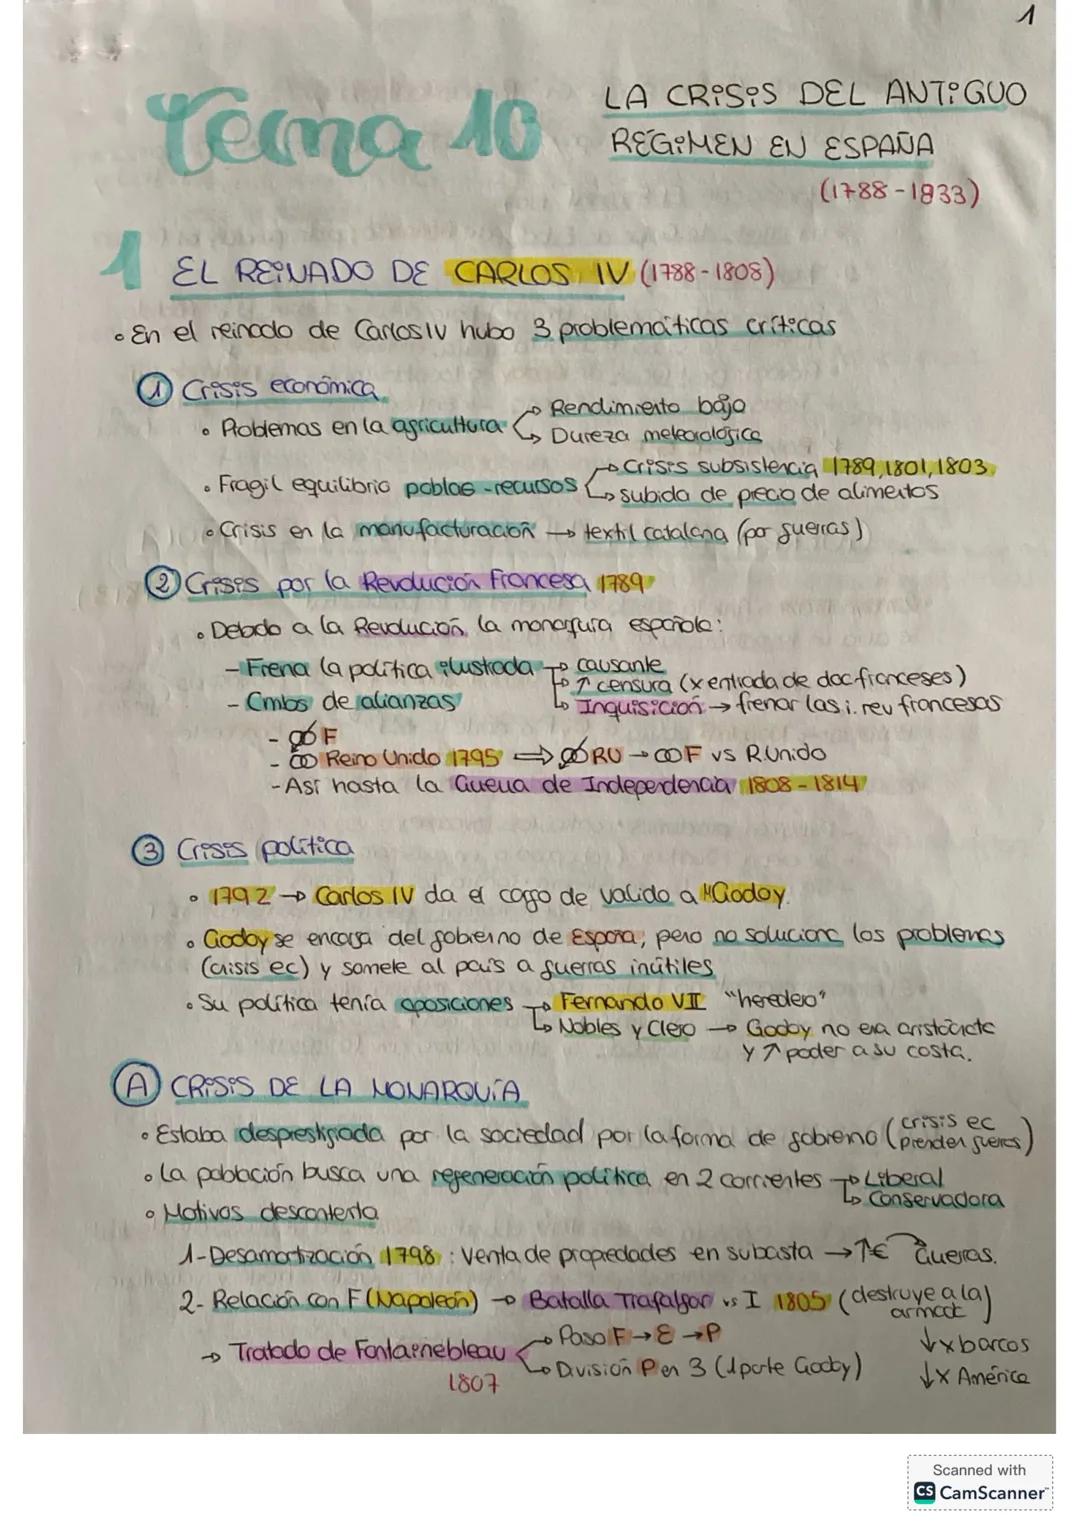 1
Tema 10
LA CRISIS DEL ANTIGUO
RÉGIMEN EN ESPAÑA
(1788-1833)
1 EL REINADO DE CARLOS IV (1788-1808)
• En el reinado de Carlos IV hubo 3 problemáticas críticas
① Crisis económica
• Problemas en la agricultura → Rendimiento bajo
↳ Dureza meteorológica
• Fragil equilibrio poblac-recursos → Crisis subsistencia 1789, 1801, 1803
↳ subida de precio de alimentos
• Crisis en la manufacturación → textil catalana (por guerras)
② Crisis por la Revolución Francesa 1789
• Debido a la Revolución la monarquía española:
- Frena la política ilustrada → causante
→ ↑ censura (x entrada de doc franceses)
- Cmbs de alianzas
↳ Inquisición → frenar las i. rev francesas
- F
- Reino Unido 1795 ⇒ RU → ∞ F vs R.Unido
- Así hasta la Guerra de Independencia 1808-1814
③ Crisis política
• 1792 → Carlos IV da el cargo de valido a M Godoy.
• Godoy se encarga del gobierno de España, pero no soluciona los problemas
(crisis ec) y somete al país a guerras inútiles
• Su política tenía oposiciones → Fernando VII "heredero"
↳ Nobles y Clero → Godoy no era aristócrata
y ↑ poder a su costa.
A CRISIS DE LA MONARQUÍA
• Estaba desprestigiada por la sociedad por la forma de gobierno (crisis ec
pierden guerras)
• La población busca una regeneración política en 2 corrientes → Liberal
↳ Conservadora
• Motivos descontento
1-Desamortización 1798: Venta de propiedades en subasta → ↑€ Guerras.
2- Relación con F (Napoleón) → Batalla Trafalgar vs I 1805 (destruye a la
armada)
→ Tratado de Fontainebleau → Paso F → E → P
↓ x barcos
1807
↳ División P en 3 (1 parte Godoy)
↓ x América
Scanned with
CS CamScanner